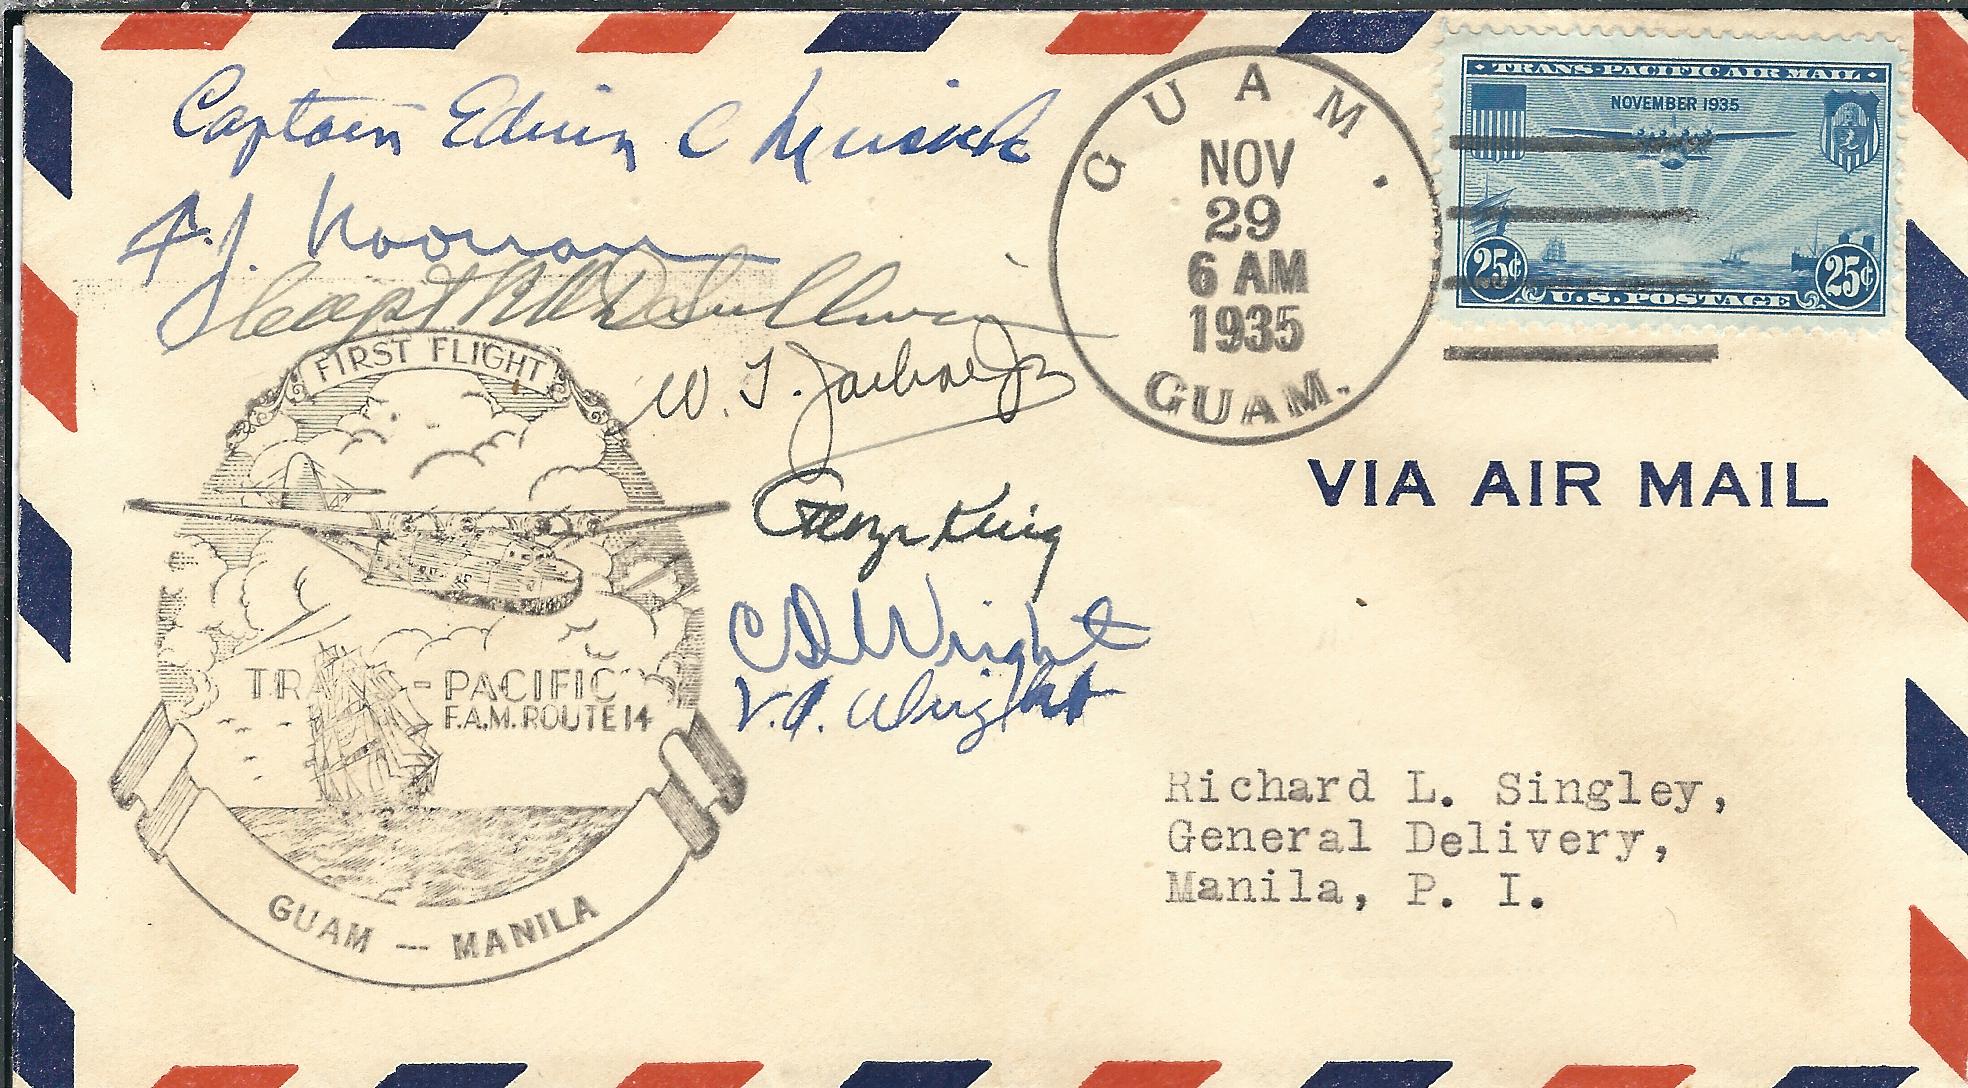 TRANS-PACIFIC AIR MAIL
NOVEMBER 1935
25¢ 25¢
U.S. POSTAGE
GUAM.
NOV
29
6 AM
1935
GUAM.
Captain Edwin C Musick
F. J. Noonan
Capt R O D Sullivan
W. T. Jarboe Jr
George King
C D Wright
V. A. Wright
FIRST FLIGHT
TRANS-PACIFIC
F.A.M. ROUTE 14
GUAM — MANILA
VIA AIR MAIL
Richard L. Singley,
General Delivery,
Manila, P. I.